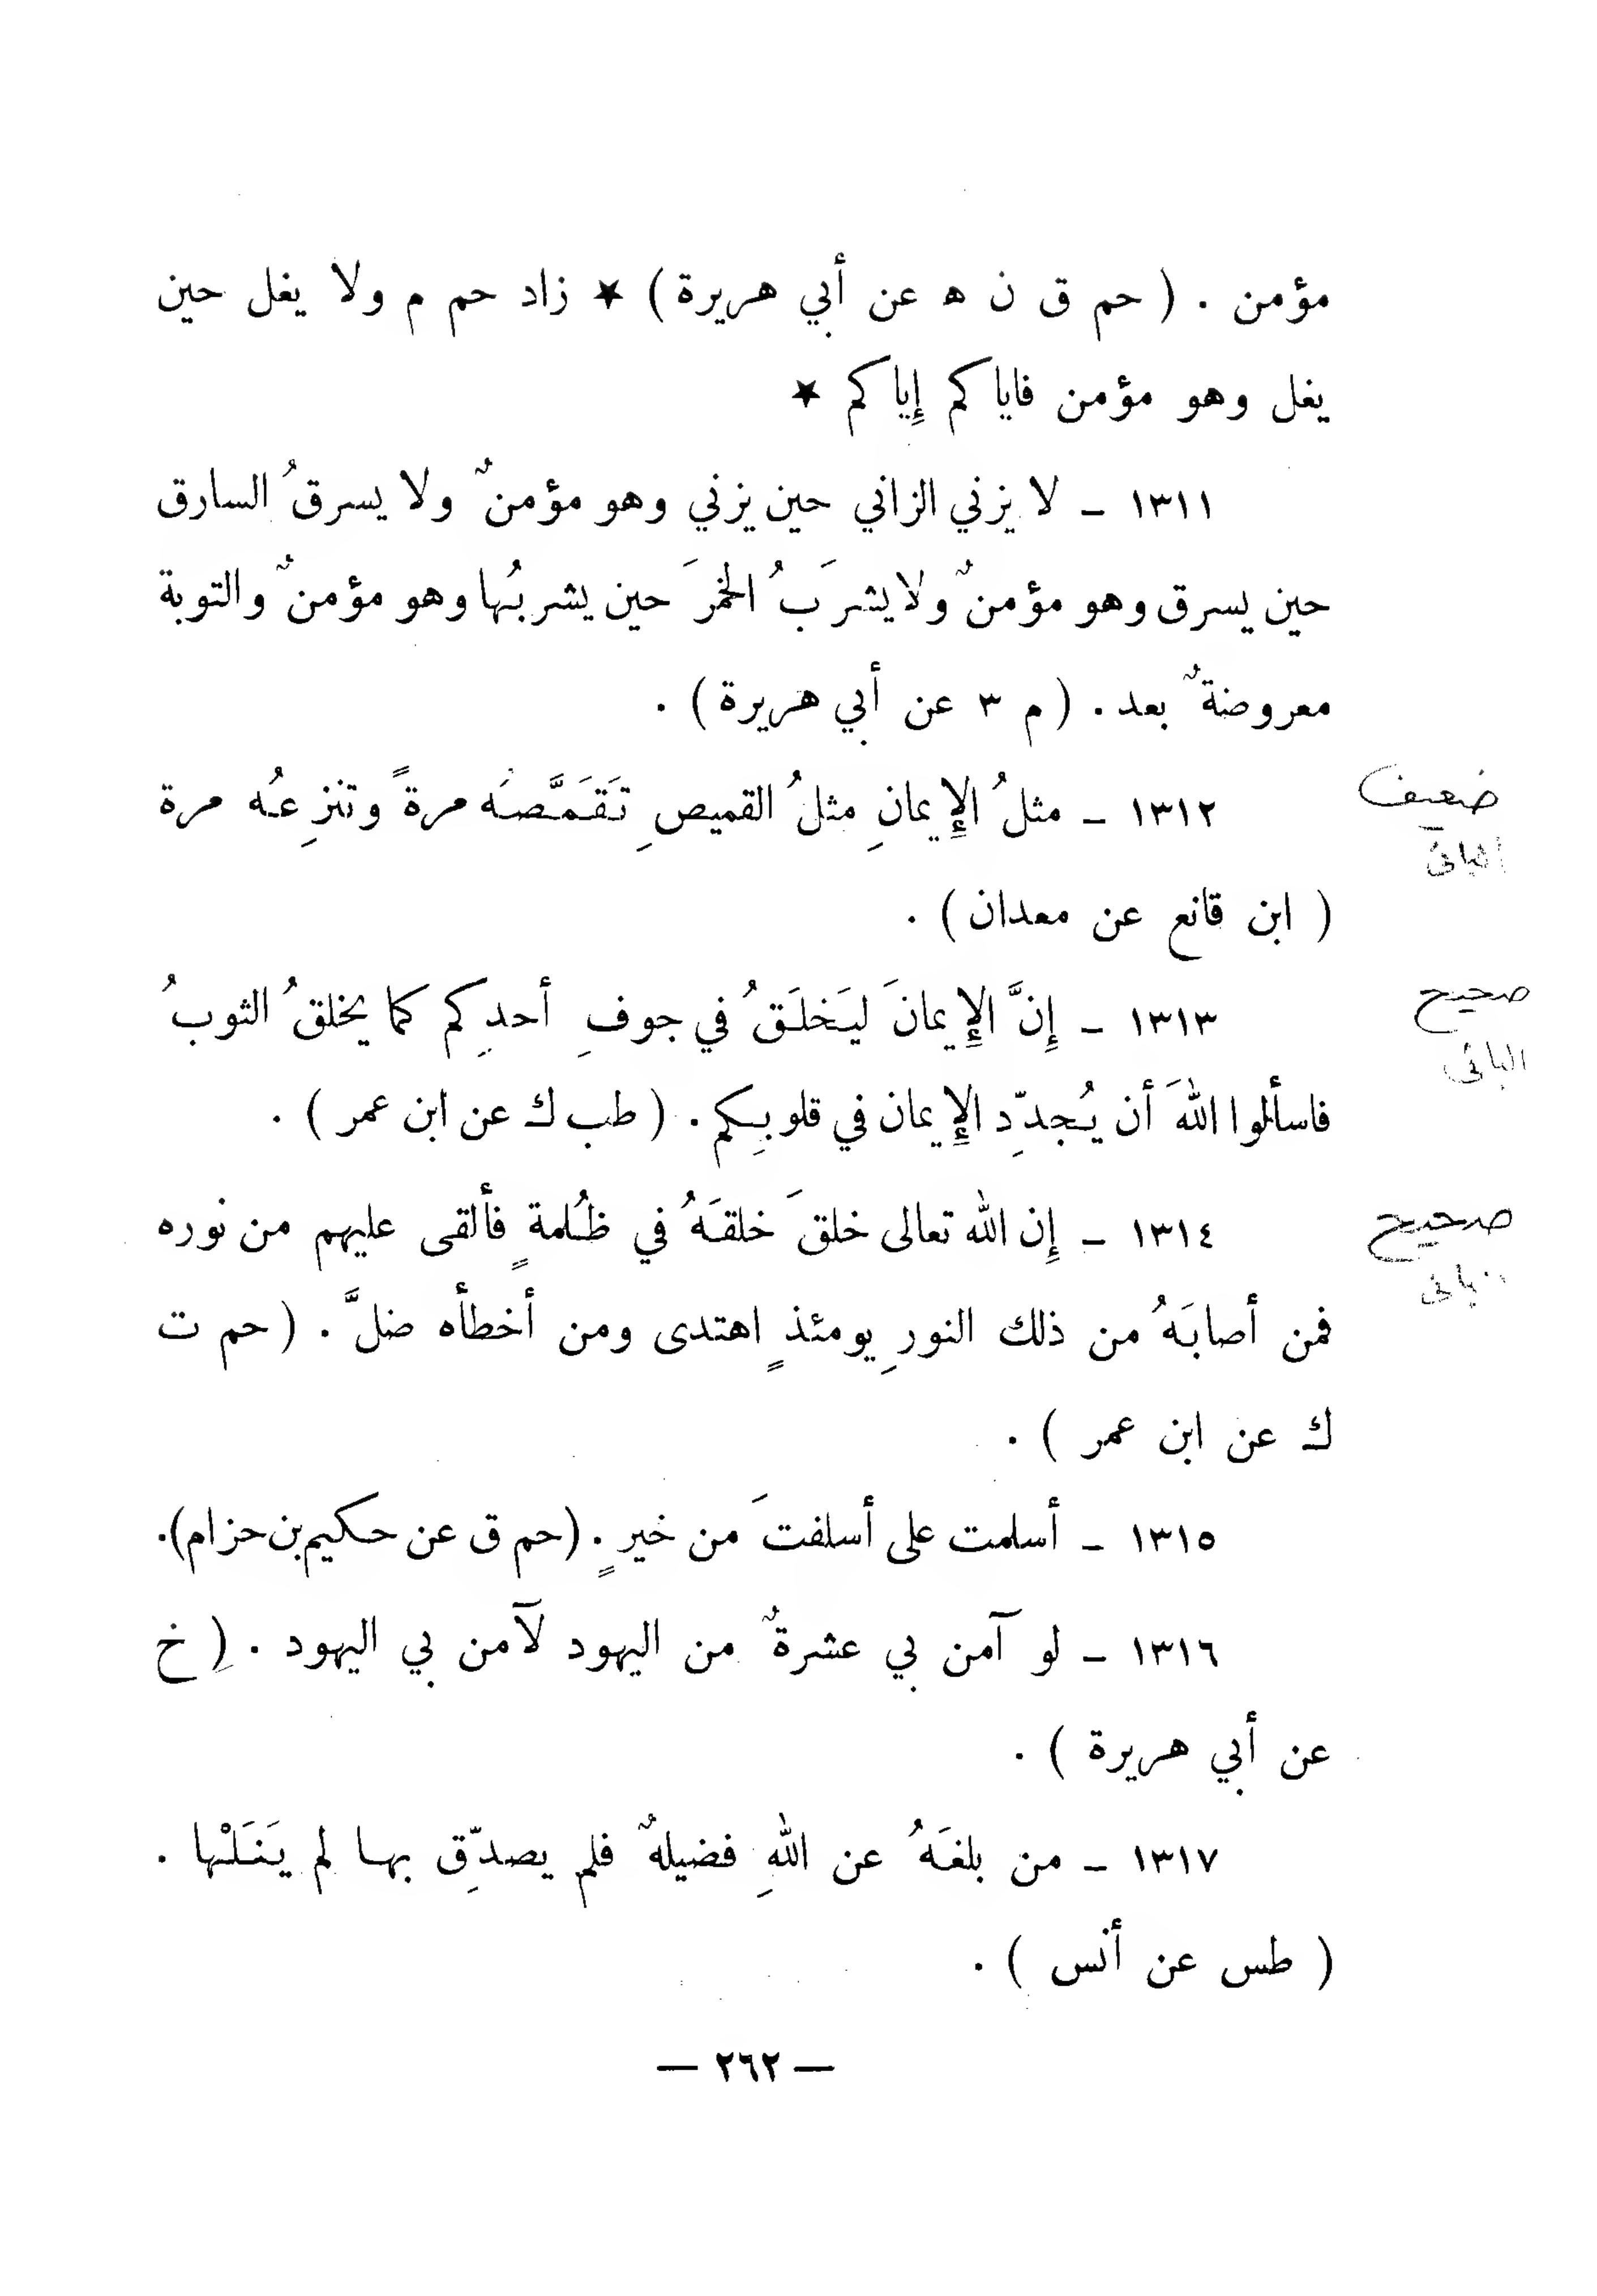 مؤمن . ( حم ق ن ه عن أبي هريرة ) ★ زاد حم م ولا يغل حين
يغل وهو مؤمن فاياكم إِياكم ★
١٣١١ ـ لا يزني الزاني حين يزني وهو مؤمنٌ ولا يسرقُ السارق
حين يسرق وهو مؤمنٌ ولا يشرَبُ الخمرَ حين يشربُها وهو مؤمنٌ والتوبة
معروضةٌ بعد . ( م ٣ عن أبي هريرة ) .
١٣١٢ ـ مثلُ الإِيمانِ مثلُ القميصِ تَقَمَّصُه مرةً وتنزِعُه مرة
ضعيف
ألبانى
( ابن قانع عن معدان ) .
١٣١٣ ـ إِنَّ الإِيمانَ ليَخلَقُ في جوفِ أحدِكم كما يخلقُ الثوبُ
صحيح
البانى
فاسألوا اللهَ أن يُجدِّد الإِيمان في قلوبِكم . ( طب ك عن ابن عمر ) .
١٣١٤ ـ إِن الله تعالى خلقَ خلقَهُ في ظُلمةٍ فألقى عليهم من نوره
صحيح
البانى
فمن أصابَهُ من ذلك النورِ يومئذٍ اهتدى ومن أخطأه ضلَّ . ( حم ت
ك عن ابن عمر ) .
١٣١٥ ـ أسلمت على أسلفتَ من خيرٍ . ( حم ق عن حكيم بن حزام ) .
١٣١٦ ـ لو آمن بي عشرةٌ من اليهود لآمن بي اليهود . ( خ
عن أبي هريرة ) .
١٣١٧ ـ من بلغَهُ عن اللهِ فضيلهٌ فلم يصدِّق بها لم يَنَلْها .
( طس عن أنس ) .
— ٢٦٢ —